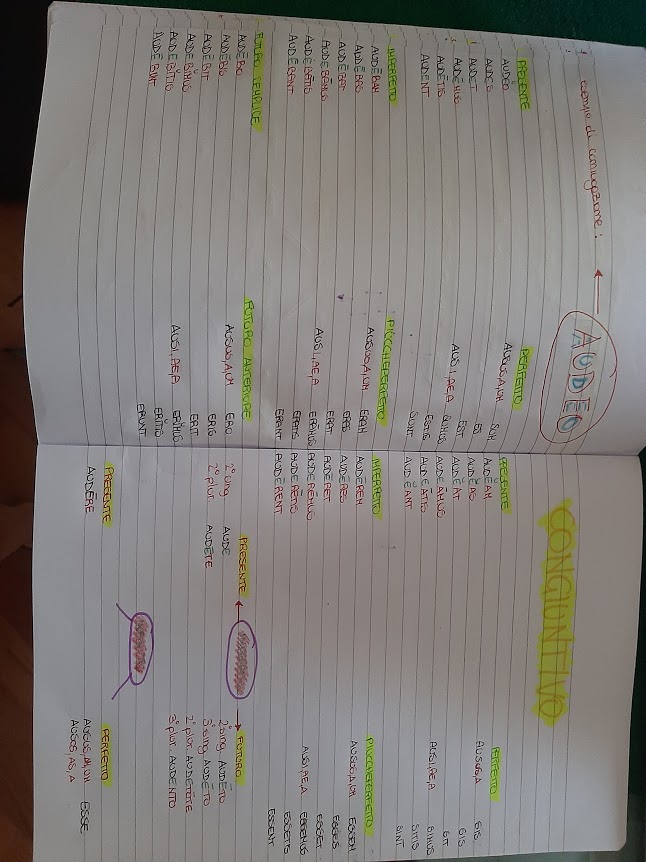 esempio di coniugazione:
AUDEO
PRESENTE
AUDĔO
AUDES
AUDET
AUDĒMUS
AUDĒTIS
AUDENT
PERFETTO
AUSUS,A,UM SUM
ES
EST
AUSI,AE,A SUMUS
ESTIS
SUNT
IMPERFETTO
AUDĒBAM
AUDĒBAS
AUDĒBAT
AUDĒBĀMUS
AUDĒBĀTIS
AUDĒBANT
PIUCCHEPERFETTO
AUSUS,A,UM ERAM
ERAS
ERAT
AUSI,AE,A ERĀMUS
ERĀTIS
ERANT
FUTURO SEMPLICE
AUDĒBO
AUDĒBIS
AUDĒBIT
AUDĒBĬMUS
AUDĒBĬTIS
AUDĒBUNT
FUTURO ANTERIORE
AUSUS,A,UM ERO
ERIS
ERIT
AUSI,AE,A ERĬMUS
ERĬTIS
ERUNT
CONGIUNTIVO
PRESENTE
AUDĔAM
AUDĔAS
AUDĔAT
AUDEĀMUS
AUDEĀTIS
AUDĔANT
PERFETTO
AUSUS,A
SIS
SIT
AUSI,AE,A SIMUS
SITIS
SINT
IMPERFETTO
AUDĒREM
AUDĒRES
AUDĒRET
AUDĒRĒMUS
AUDĒRĒTIS
AUDĒRENT
PIUCCHEPERFETTO
AUSUS,A,UM ESSEM
ESSES
ESSET
AUSI,AE,A ESSEMUS
ESSETIS
ESSENT
PRESENTE
2° sing. AUDE
2° plur. AUDĒTE
FUTURO
2° sing. AUDĒTO
3° sing. AUDĒTO
2° plur. AUDĒTOTE
3° plur. AUDENTO
PRESENTE
AUDĒRE
PERFETTO
AUSUM,AM,UM ESSE
AUSOS,AS,A